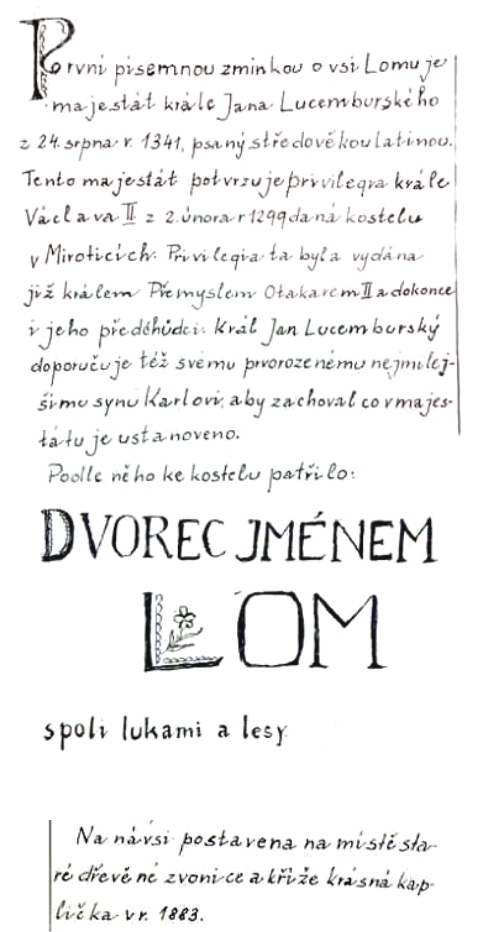 První písemnou zmínkou o vsi Lomu je
majestát krále Jana Lucemburského
z 24. srpna r. 1341, psaný středověkou latinou.
Tento majestát potvrzuje privilegia krále
Václava II z 2. února r 1299 daná kostelu
v Miroticích. Privilegia ta byla vydána
již králem Přemyslem Otakarem II a dokonce
i jeho předchůdci. Král Jan Lucemburský
doporučuje též svému prvorozenému nejmilej-
šímu synu Karlovi, aby zachoval co v majes-
tátu je ustanoveno.
Podle něho ke kostelu patřilo:
DVOREC JMÉNEM
LOM
spoli lukami a lesy
Na návsi postavena na místě sta-
ré dřevěné zvonice a kříže krásná kap-
lička v r. 1883.